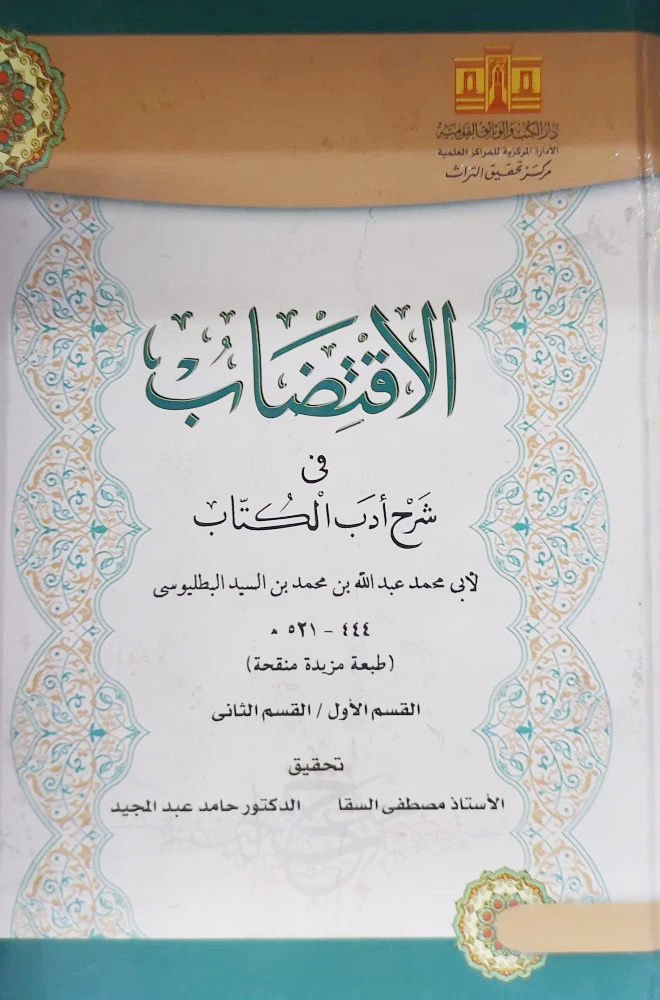 دار الكتب والوثائق القومية
الإدارة المركزية للمراكز العلمية
مركز تحقيق التراث
الاقْتِضَابُ
فى
شَرْح أدَب الْكُتّاب
لأبى محمد عبد الله بن محمد بن السيد البطليوسى
٤٤٤ - ٥٢١ هـ
(طبعة مزيدة منقحة)
القسم الأول / القسم الثانى
تحقيق
الأستاذ مصطفى السقا الدكتور حامد عبد المجيد